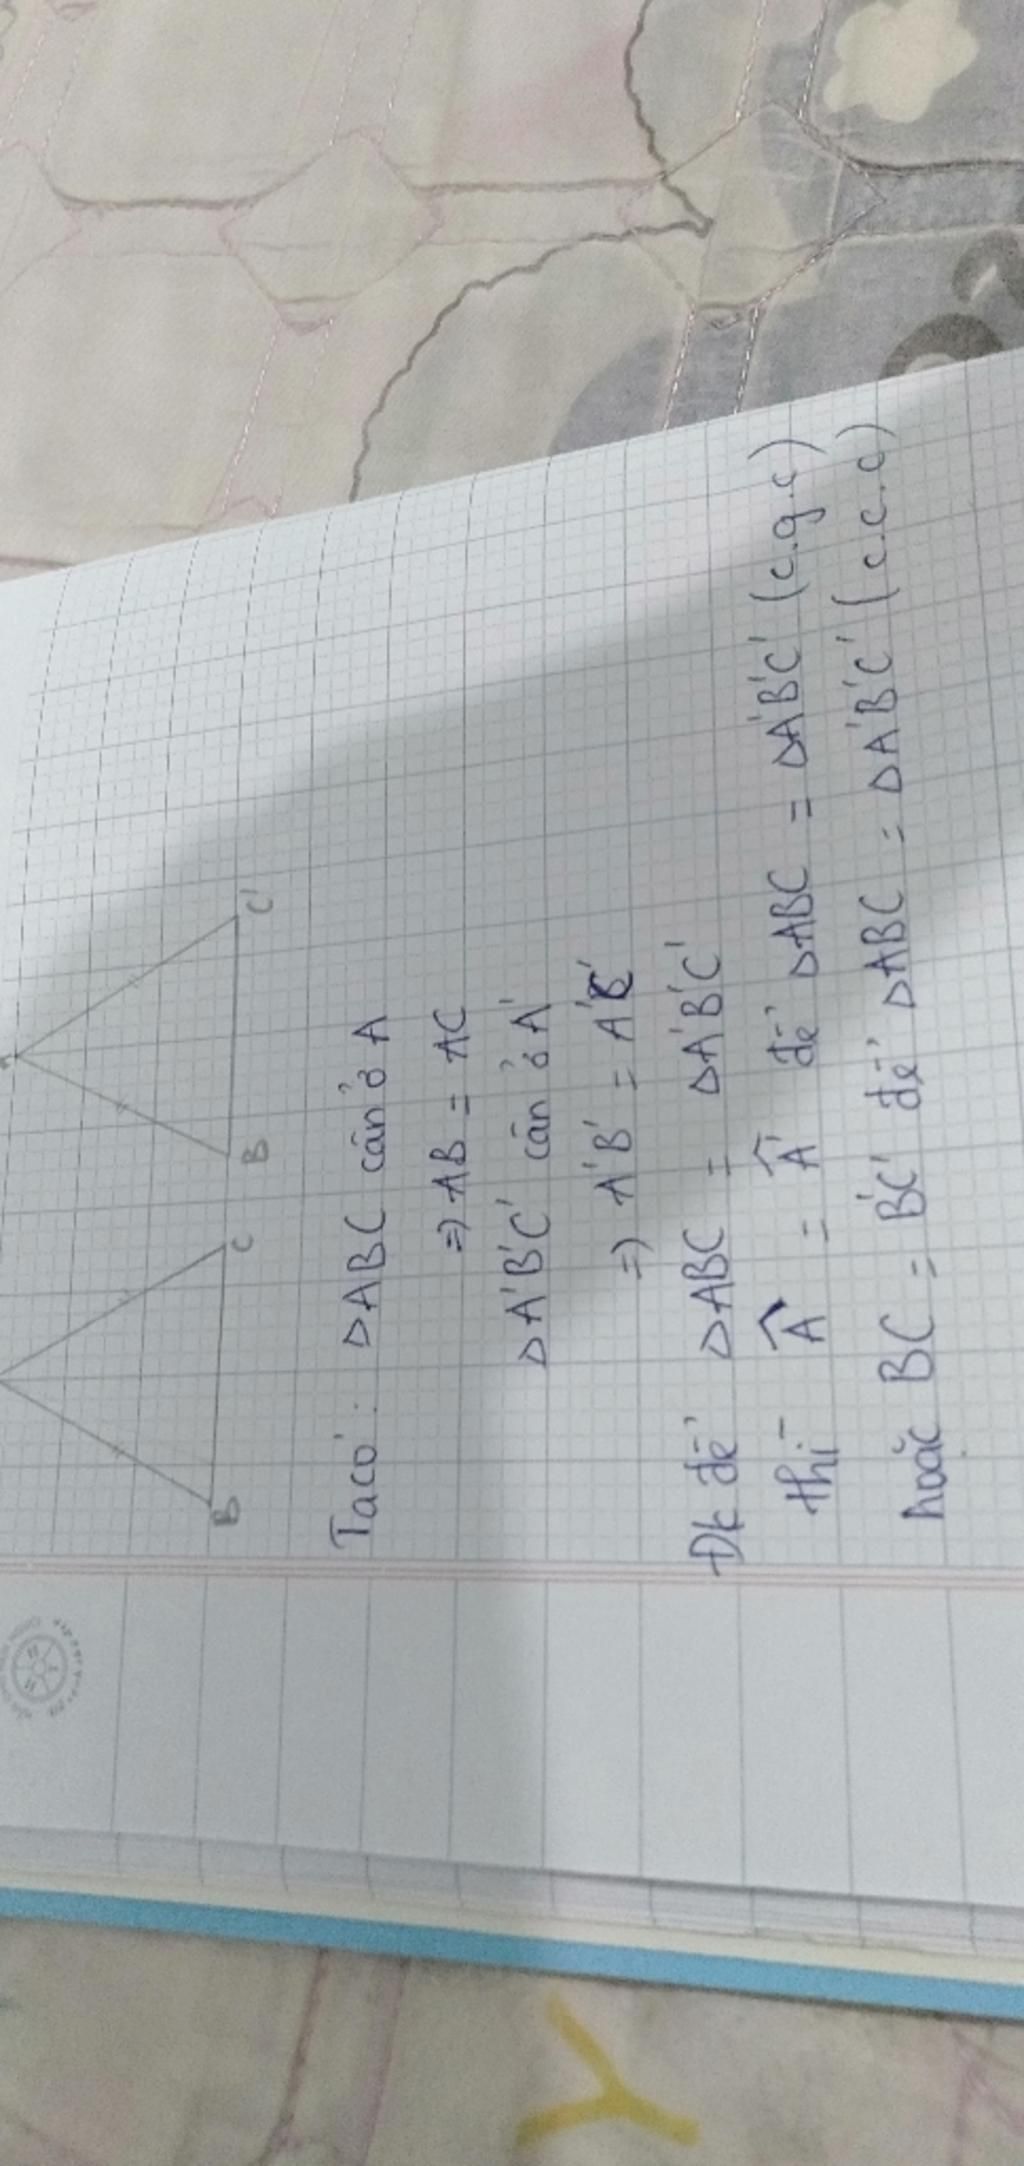 B C B C'
Ta có: ΔABC cân ở A
=) AB = AC
ΔA'B'C' cân ở A'
=) A'B' = A'C'
Đk để ΔABC = ΔA'B'C'
thì Â = Â' để ΔABC = ΔA'B'C' (c.g.c)
hoặc BC = B'C' để ΔABC = ΔA'B'C' (c.c.c)